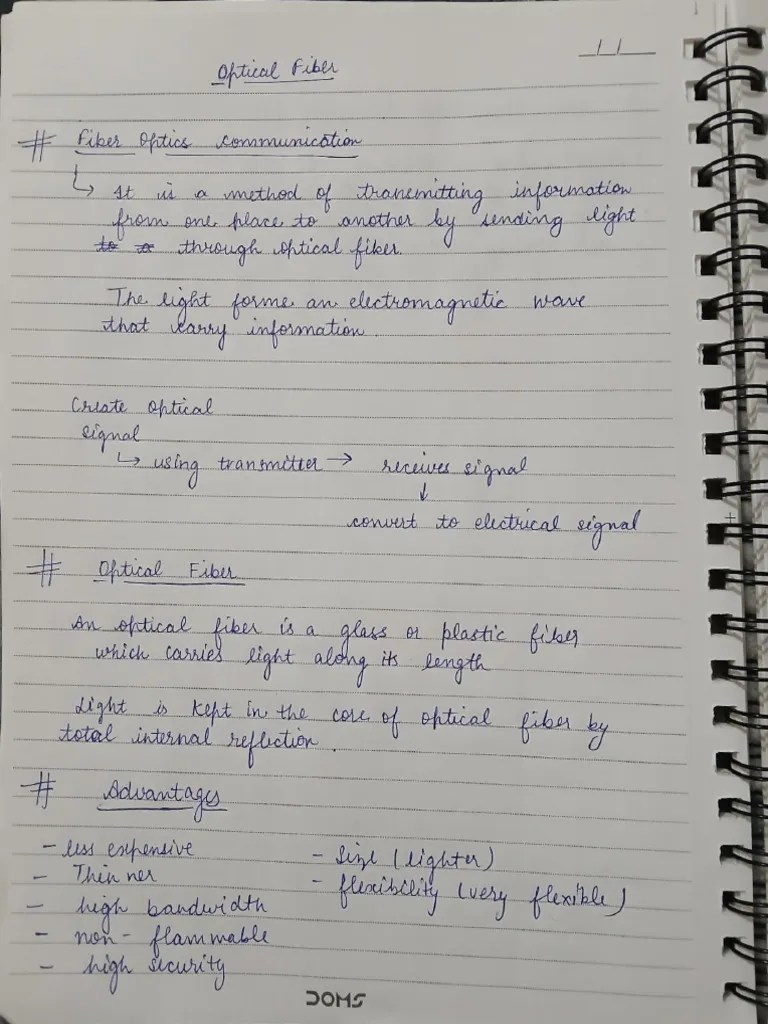 _/_/___
Optical Fiber
# Fiber Optics communication
↳ It is a method of transmitting information
from one place to another by sending light
to a through optical fiber.
The light forms an electromagnetic wave
that carry information.
Create optical
signal
↳ using transmitter → receives signal
↓
convert to electrical signal
# Optical Fiber
An optical fiber is a glass or plastic fiber
which carries light along its length
Light is kept in the core of optical fiber by
total internal reflection.
# Advantages
- less expensive
- Thinner
- high bandwidth
- non-flammable
- high security
- Size (lighter)
- flexibility (very flexible)
DOMS